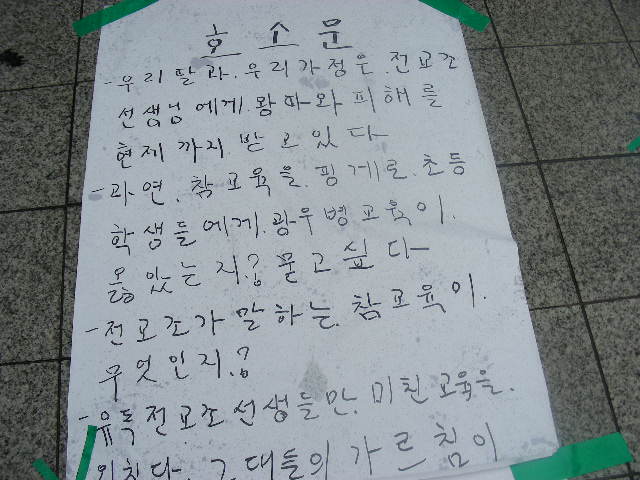 호소문
-우리 딸과. 우리가정은. 전교조
선생님에게. 왕따와 피해를
현제까지 받고 있다
-과연. 참교육을. 핑계로. 초등
학생들에게. 광우병교육이.
옳았는지.? 묻고 싶다
-전교조가 말하는. 참교육이.
무엇인지.?
-유독전교조선생들만. 미친교육을.
외친다. 그대들의 가르침이